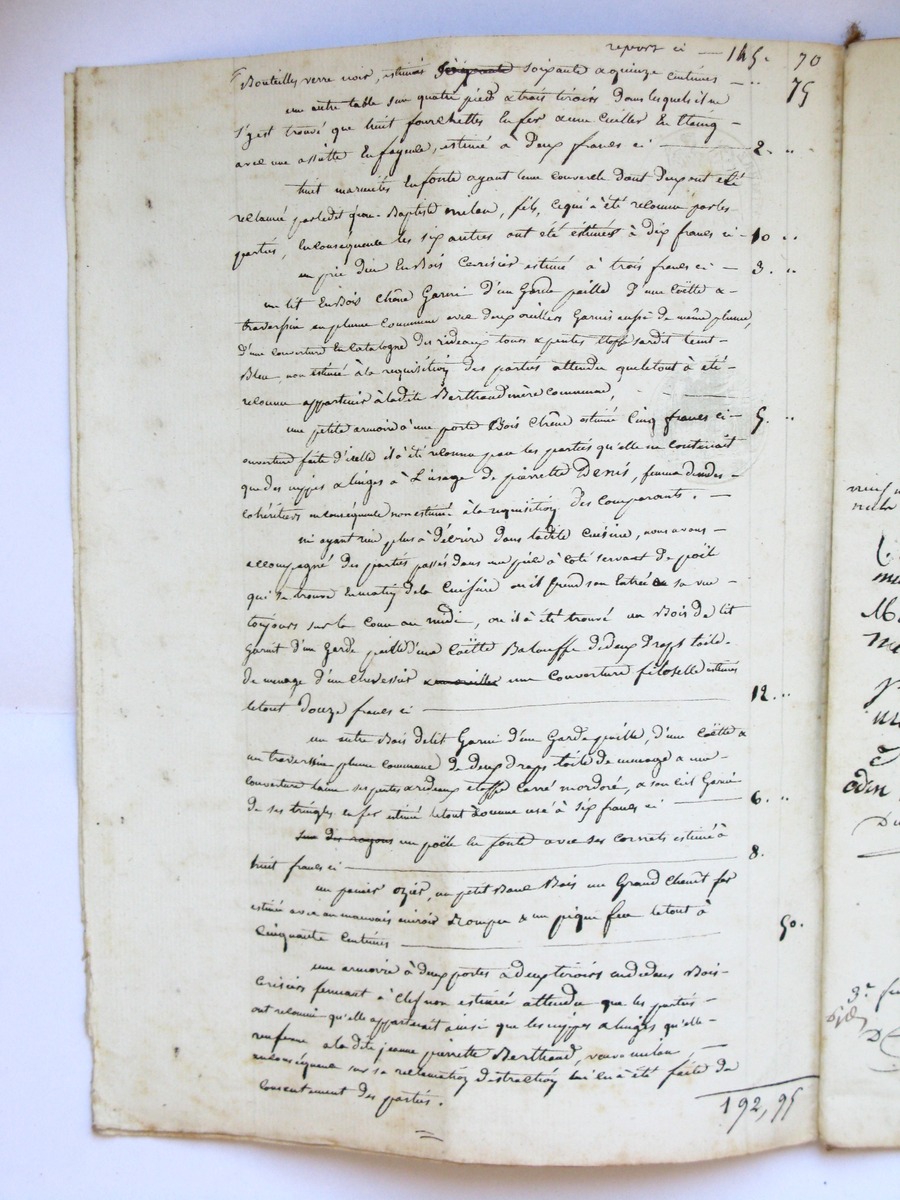 report ci — 145. 70
Bouteilles verre noir, estimés soixante soixante & quinze centimes — " 75
une autre table sur quatre pieds & trois tiroirs dans lesquels il ne
s'y est trouvé que huit fourchettes en fer & une cuiller en étaing
avec une assiette en fayence, estimée à deux francs ci — 2. "
huit marmites en fonte ayant leur couvercle dont deux ont été
réclamé par ledit Jean-Baptiste milan, fils, ce qui à été reconnu par les
parties, en conséquence les six autres ont été éstimés à dix francs ci — 10 "
un prie dieu en Bois Cerisier estimé à trois francs ci — 3. "
un lit en Bois Chêne Garni d'un Garde paille d'une Coëtte &
traversin en plume commune avec deux oreillers Garnis aussi de même plume,
d'une couverture en Catalogne des rideaux tours & pentes étoffe sardit teint
Bleu, non estimé à la requisition des parties attendu que le tout à été
reconnu appartenir à la dite Berthaud mère commune,
une petite armoire à une porte Bois Chêne estimée Cinq francs ci — 5. "
ouverture faite d'icelle il à été reconnu par les parties qu'elle ne contenait
que des nippes & linges à l'usage de pierrette Denis, femme d'un des
cohéritiers en conséquence non estimé à la requisition des comparants. —
ni ayant rien plus à décrire dans ladite cuisine, nous avons
accompagné des parties passés dans une pièce à coté servant de poële
qui se trouve en matin de la Cuisine où il prend son entrée sa vue
toujours sur le Cour au midi, où il à été trouvé un Bois de lit
garnit d'un garde paille d'une Coëtte Balouffe de deux draps toile
de menage d'un chevessier & une couverture filoselle estimés
le tout douze francs ci — 12. "
un autre Bois de lit Garni d'un Garde paille, d'une Coëtte &
un traversin plume commune de deux draps toile de menage & une
couverture laine ses pentes & rideaux étoffe Carré mordoré, & son ciel Garni
de ses tringles en fer estimé le tout comme usé à six francs ci — 6. "
sur des rayons un poële en fonte avec ses cornets estimé à
huit francs ci — 8.
un panier ozier, un petit Banc Bois un Grand Chenet fer
estimé avec un mauvais miroir & rompu & un pique feu le tout à
Cinquante Centimes — 50.
une armoire à deux portes & deux tiroirs au dedans Bois
Cerisier fermant à Clef non estimée attendu que les parties
ont reconnu qu'elle appartenait ainsi que les nippes & linges qu'elle
renferme à la dite jeanne pierrette Berthaud, veuve milan,
en conséquence sur sa reclamation distraction lui en à été faite du
Consentement des parties.
192,95